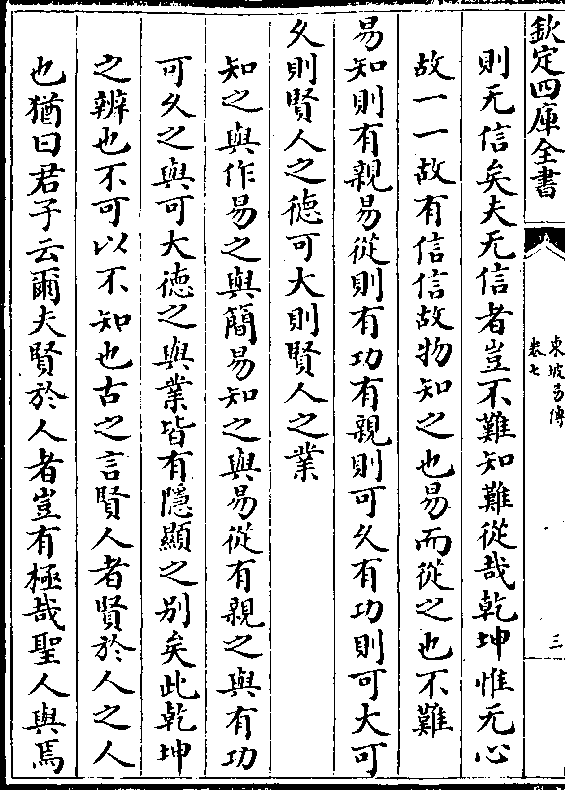 欽定四庫全書
東坡易傳
卷七
三
則无信矣夫无信者豈不難知難從哉乾坤惟无心
故一一故有信信故物知之也易而從之也不難
易知則有親易從則有功有親則可久有功則可大可
久則賢人之德可大則賢人之業
知之與作易之與簡易知之與易從有親之與有功
可久之與可大德之與業皆有隱顯之别矣此乾坤
之辨也不可以不知也古之言賢人者賢於人之人
也猶曰君子云爾夫賢於人者豈有極哉聖人與焉